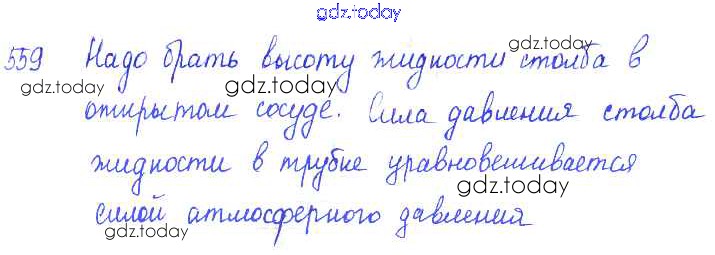 gdz.today
559 Надо брать высоту жидкости столба в
gdz.today
gdz.today
gdz.today
открытом сосуде. Сила давления столба
gdz.today
жидкости в трубке уравновешивается
gdz.today
силой атмосферного давления
gdz.today